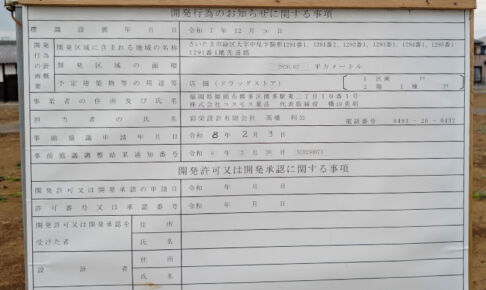 開発行為のお知らせに関する事項
標識設置年月日 令和7年12月26日
開発行為の計画概要
開発区域に含まれる地域の名称 さいたま市緑区大字中尾字駒形1291番1、1291番2、1292番1、1293番1、1294番1、1295番1
1291番1地先道路
開発区域の面積 平方メートル
予定建築物等の用途等 店舗（ドラッグストア） 区画 戸
2階 1棟 戸
事業者の住所及び氏名 福岡県福岡市博多区博多駅東二丁目10番1号
株式会社コスモス薬品 代表取締役 横山英昭
担当者の氏名 彩栄設計有限会社 高橋 利公 電話番号 0493-26-0432
事前協議申請年月日 令和8年2月3日
事前協議調整結果通知番号 令和 8年 3月 26日
開発許可又は開発承認に関する事項
開発許可又は開発承認の申請日 令和 年 月 日
許可番号又は承認番号 令和 年 月 日
開発許可又は開発承認を受けた者 住所
氏名
設計者 住所
氏名